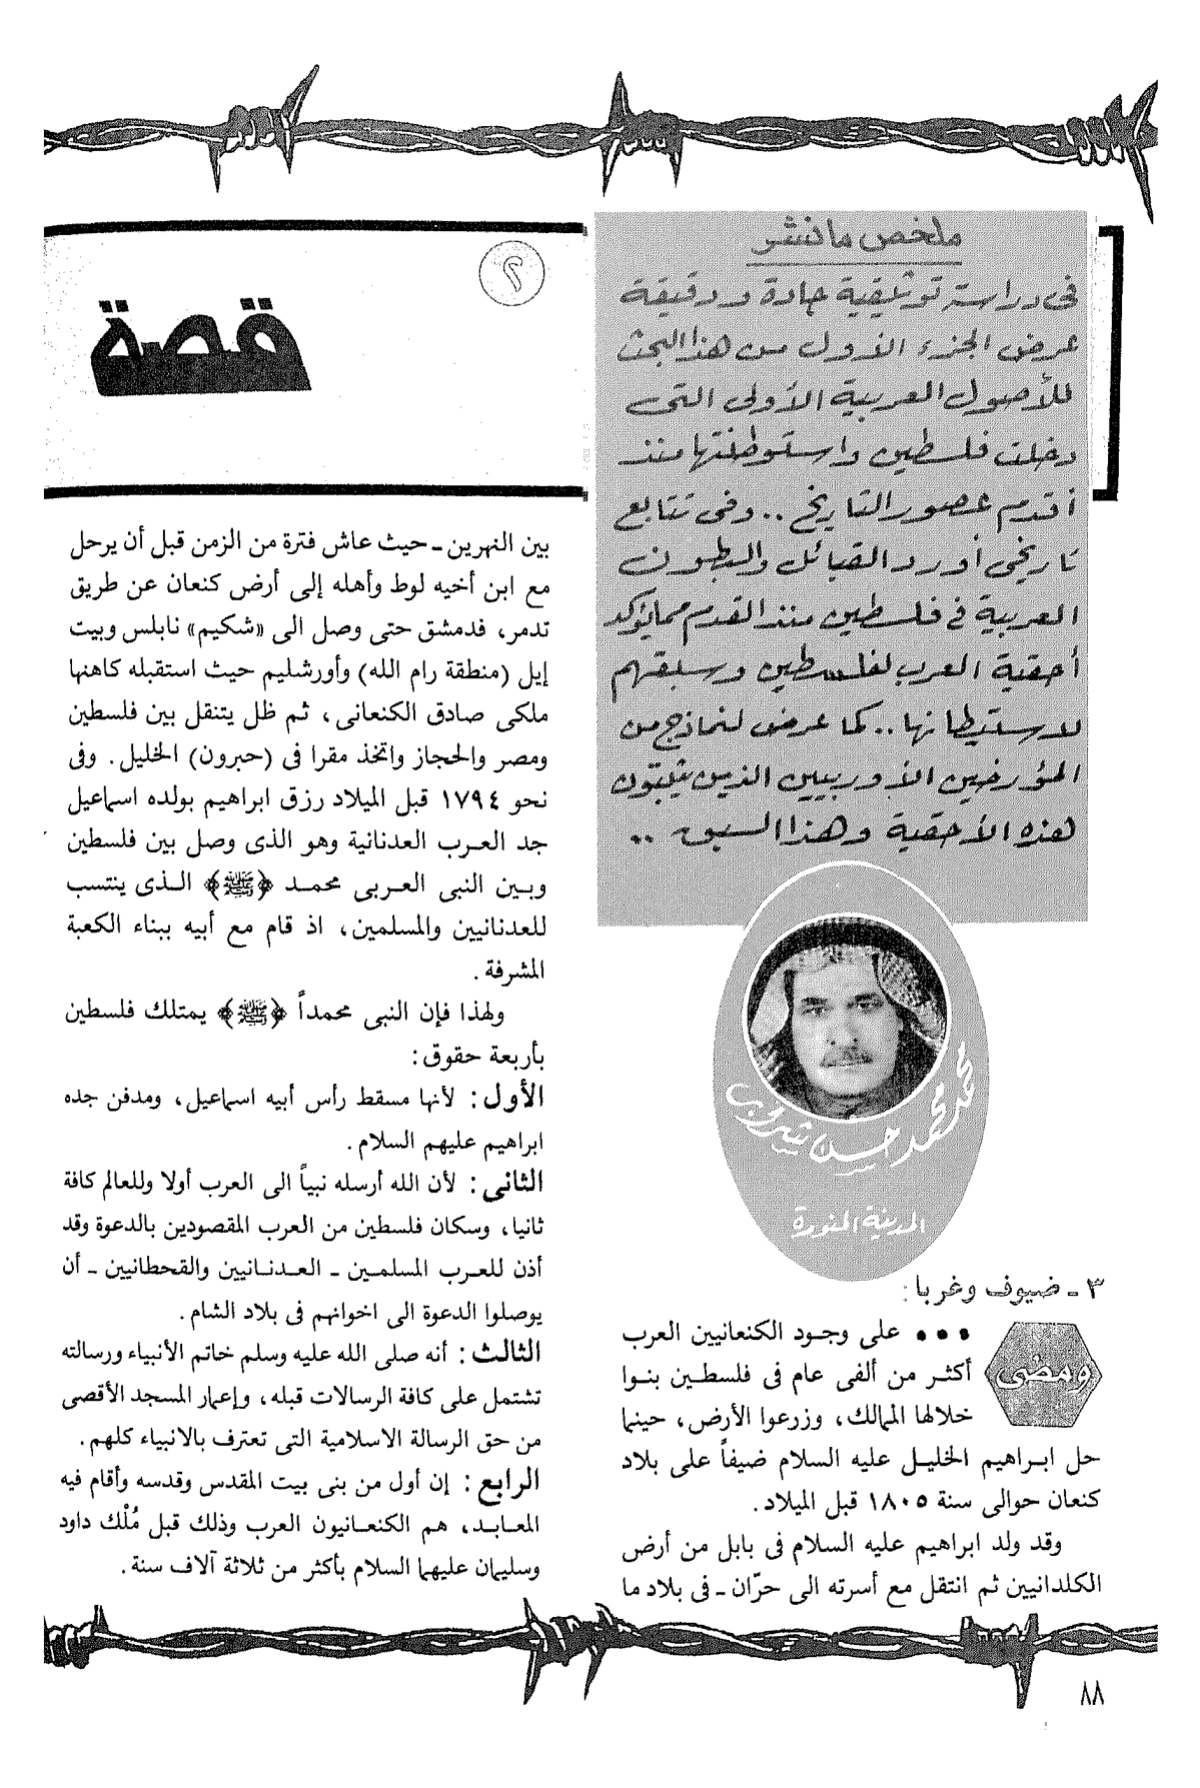 ملخص ما نشر
فى دراسة توثيقية جادة ودقيقة
عرض الجزء الأول من هذا البحث
للأصول العربية الأولى التى
دخلت فلسطين واستوطنتها منذ
أقدم عصور التاريخ .. وفى تتابع
تاريخى أورد القبائل والبطون
العربية فى فلسطين منذ القدم مما يؤكد
أحقية العرب لفلسطين وسبقهم
لاستيطانها .. كما عرض لنماذج من
المؤرخين الأوربيين الذين يثبتون
هذه الأحقية وهذا السبق ..
٢
قصة
محمد محمد حسن شراب
المدينة المنورة
٣ ـ ضيوف وغربا:
ومضى ••• على وجود الكنعانيين العرب
أكثر من ألفى عام فى فلسطين بنوا
خلالها الممالك، وزرعوا الأرض، حينما
حل ابراهيم الخليل عليه السلام ضيفاً على بلاد
كنعان حوالى سنة ١٨٠٥ قبل الميلاد .
وقد ولد ابراهيم عليه السلام فى بابل من أرض
الكلدانيين ثم انتقل مع أسرته الى حرّان ـ فى بلاد ما
بين النهرين ـ حيث عاش فترة من الزمن قبل أن يرحل
مع ابن أخيه لوط وأهله إلى أرض كنعان عن طريق
تدمر، فدمشق حتى وصل الى «شكيم» نابلس وبيت
إيل (منطقة رام الله) وأورشليم حيث استقبله كاهنها
ملكى صادق الكنعانى، ثم ظل يتنقل بين فلسطين
ومصر والحجاز واتخذ مقرا فى (حبرون) الخليل. وفى
نحو ١٧٩٤ قبل الميلاد رزق ابراهيم بولده اسماعيل
جد العرب العدنانية وهو الذى وصل بين فلسطين
وبين النبى العربى محمد ﴿ﷺ﴾ الذى ينتسب
للعدنانيين والمسلمين، اذ قام مع أبيه ببناء الكعبة
المشرفة .
ولهذا فإن النبى محمداً ﴿ﷺ﴾ يمتلك فلسطين
بأربعة حقوق:
الأول: لأنها مسقط رأس أبيه اسماعيل، ومدفن جده
ابراهيم عليهم السلام .
الثانى: لأن الله أرسله نبياً الى العرب أولا وللعالم كافة
ثانيا، وسكان فلسطين من العرب المقصودين بالدعوة وقد
أذن للعرب المسلمين ـ العدنانيين والقحطانيين ـ أن
يوصلوا الدعوة الى اخوانهم فى بلاد الشام .
الثالث: أنه صلى الله عليه وسلم خاتم الأنبياء ورسالته
تشتمل على كافة الرسالات قبله، وإعمار المسجد الأقصى
من حق الرسالة الاسلامية التى تعترف بالانبياء كلهم.
الرابع: إن أول من بنى بيت المقدس وقدسه وأقام فيه
المعابد، هم الكنعانيون العرب وذلك قبل مُلْك داود
وسليمان عليهما السلام بأكثر من ثلاثة آلاف سنة .
٨٨